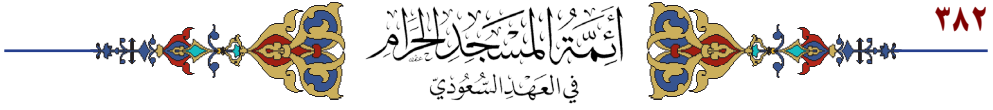 ٣٨٢
أَئِمَّةُ المَسْجِدِ الحَرَامِ
فِي العَهْدِ السُّعُودِيّ